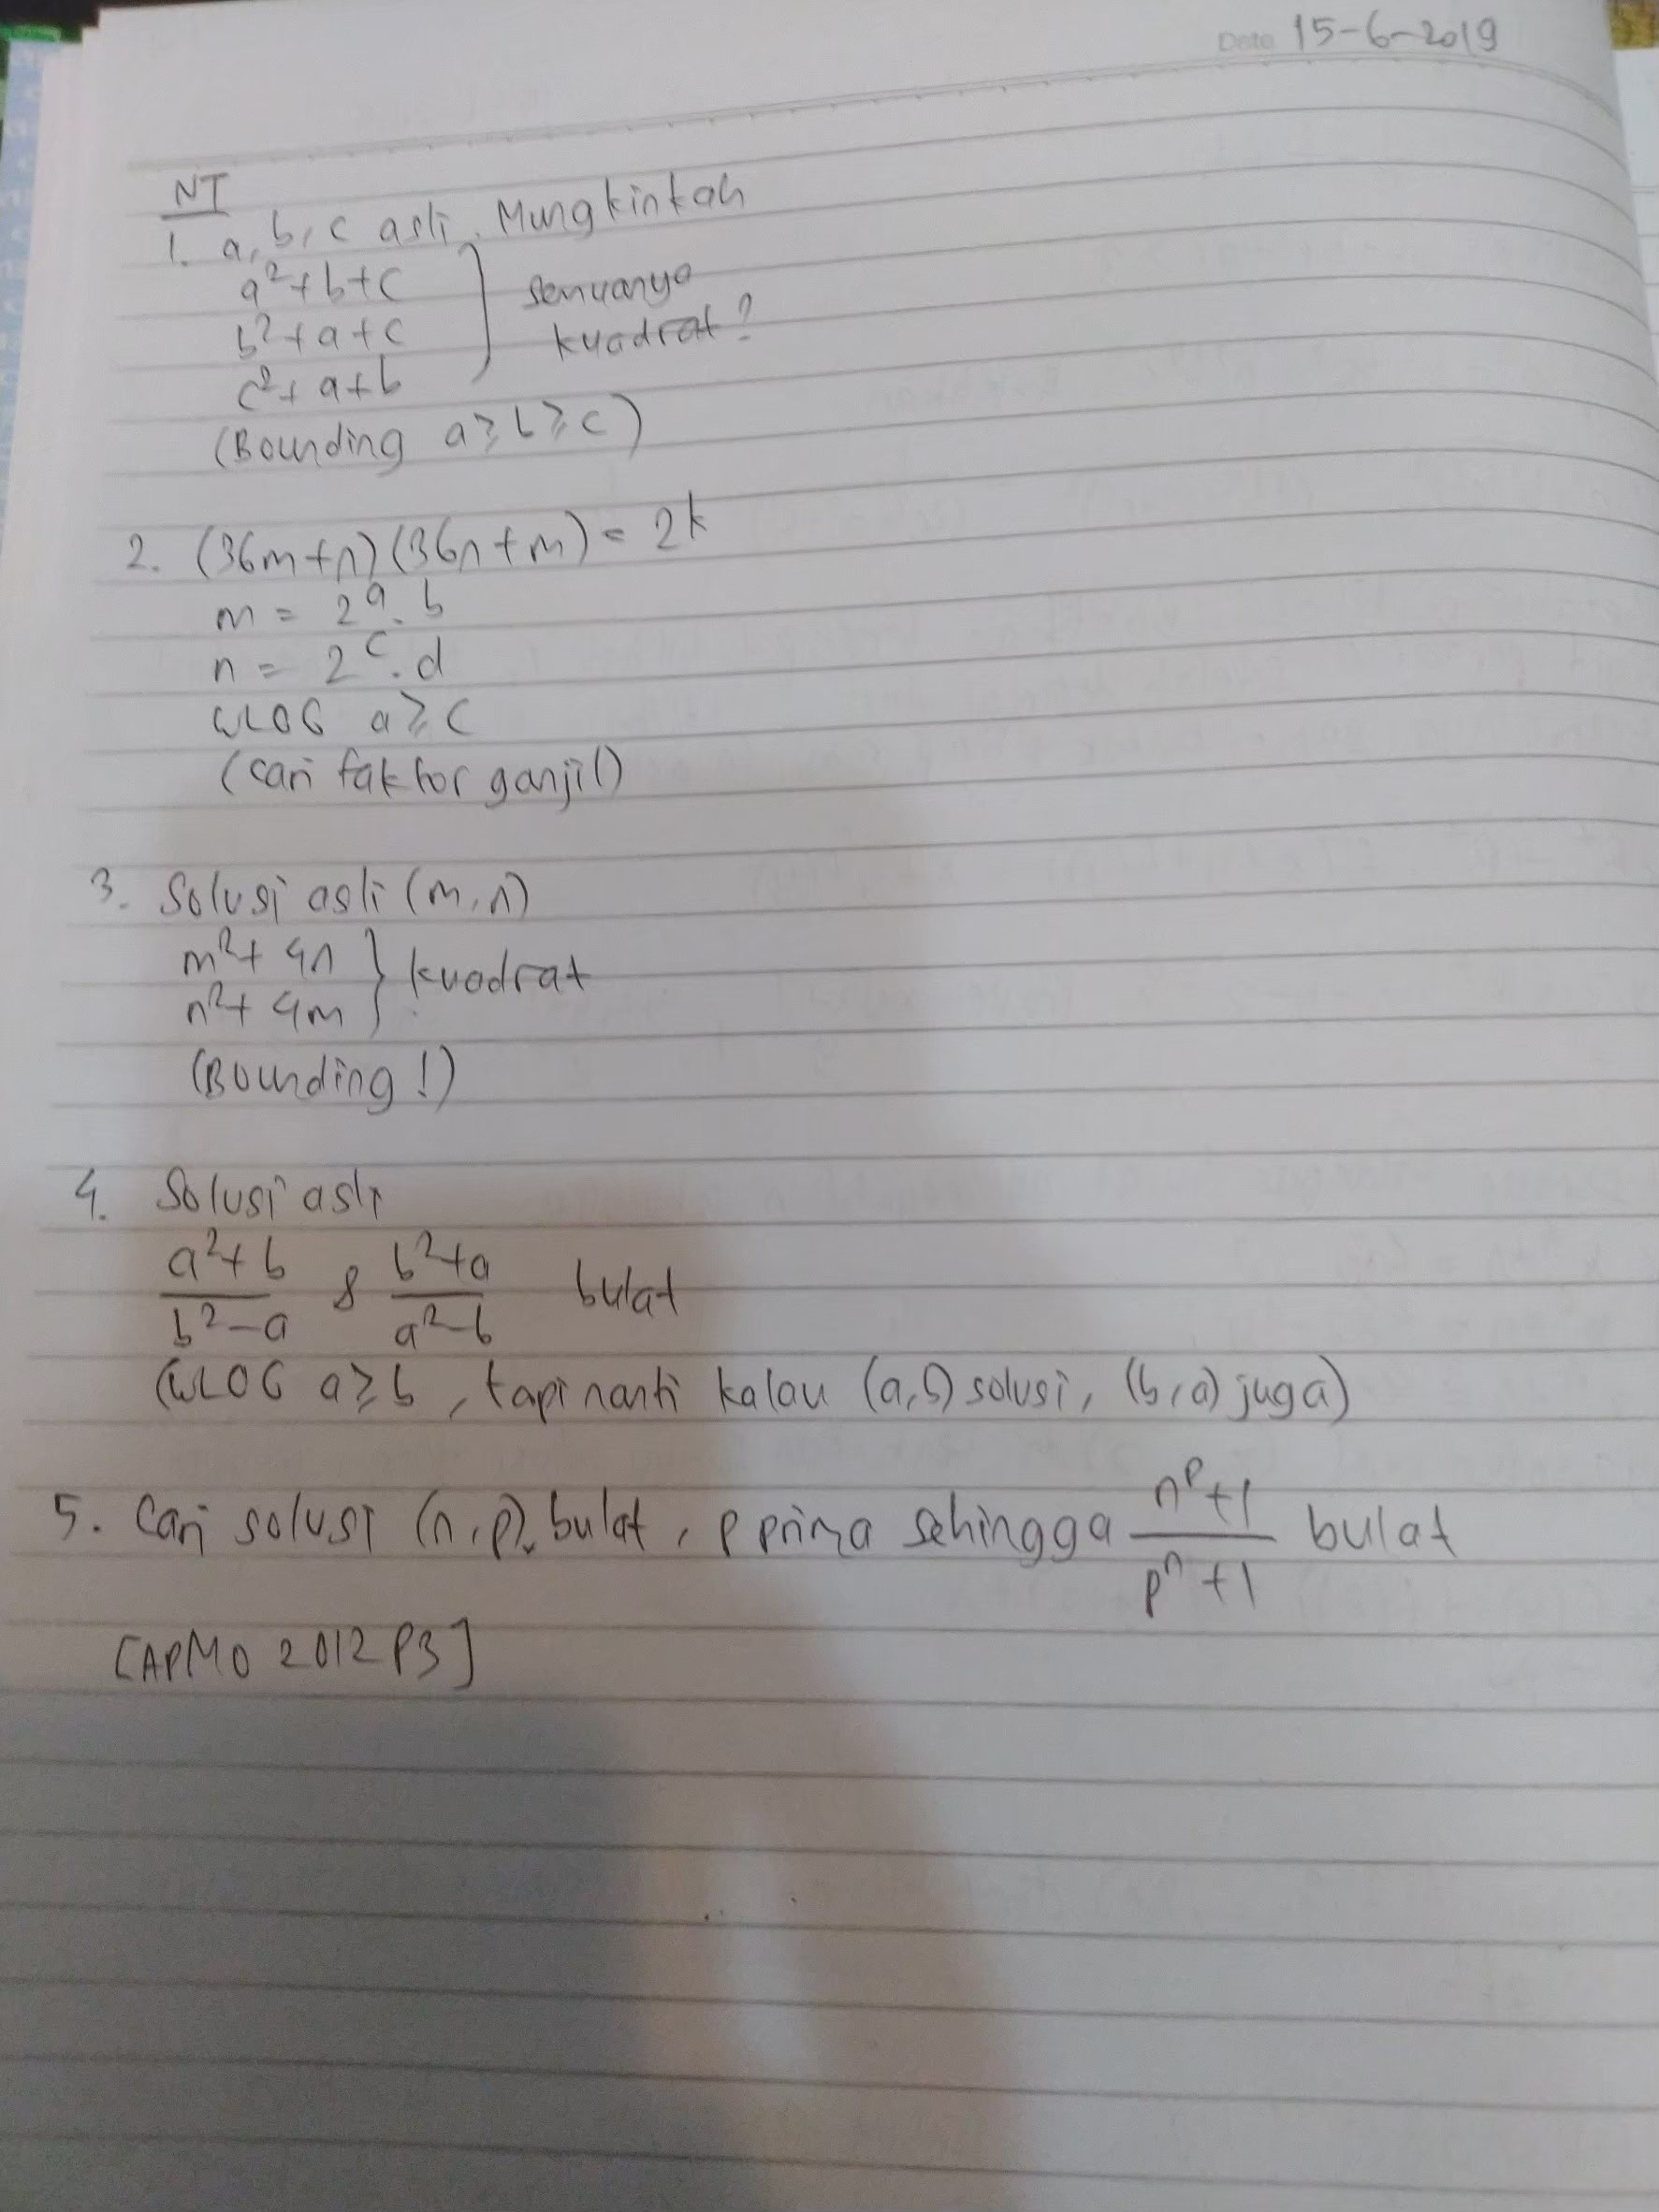 Date 15-6-2019
NT
1. a, b, c asli. Mungkinkah
a²+b+c
b²+a+c
c²+a+b
} semuanya
kuadrat?
(Bounding a≥b≥c)
2. (36m+n)(36n+m) = 2^k
m = 2^a . b
n = 2^c . d
WLOG a≥c
(cari faktor ganjil)
3. Solusi asli (m,n)
m²+4n
n²+4m
} kuadrat
(Bounding!)
4. Solusi asli
(a²+b)/(b²-a) & (b²+a)/(a²-b) bulat
(WLOG a≥b, tapi nanti kalau (a,b) solusi, (b,a) juga)
5. Cari solusi (n,p), bulat, p prima sehingga (n^p+1)/(p^n+1) bulat
[APMO 2012 P3]